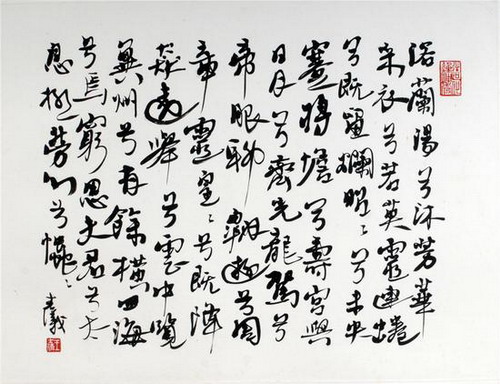 浴蘭湯兮沐芳華
采衣兮若英靈連蜷
兮既留爛昭々兮未央
蹇將憺兮壽宮與
日月兮齊光龍駕兮
帝服聊翱遊兮周
章靈皇々兮既降
猋遠舉兮雲中覽
冀州兮有餘橫四海
兮焉窮思夫君兮太
息極勞心兮